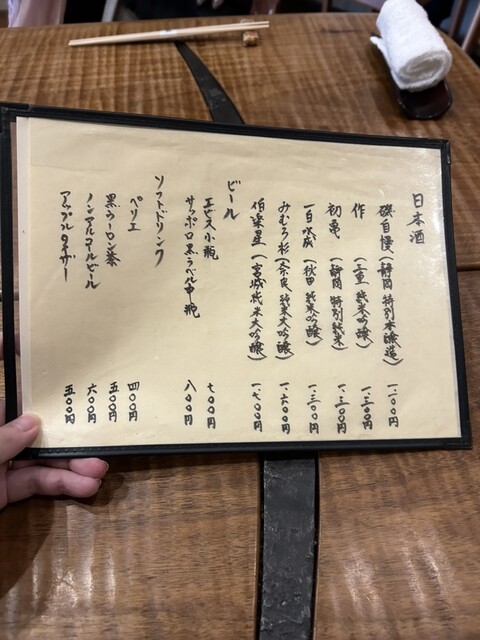 日本酒
磯自慢(静岡 特別本醸造) 一.二〇〇円
作(三重 純米吟醸) 一.三〇〇円
初亀(静岡 特別純米) 一.三〇〇円
一白水成(秋田 純米吟醸) 一.三〇〇円
みむろ杉(奈良 純米大吟醸) 一.六〇〇円
伯楽星(宮城 純米大吟醸) 一.七〇〇円
ビール
エビス小瓶 七〇〇円
サッポロ黒ラベル中瓶 八〇〇円
ソフトドリンク
ペリエ 四〇〇円
黒ウーロン茶 五〇〇円
ノンアルコールビール 六〇〇円
アップルタイザー 五〇〇円